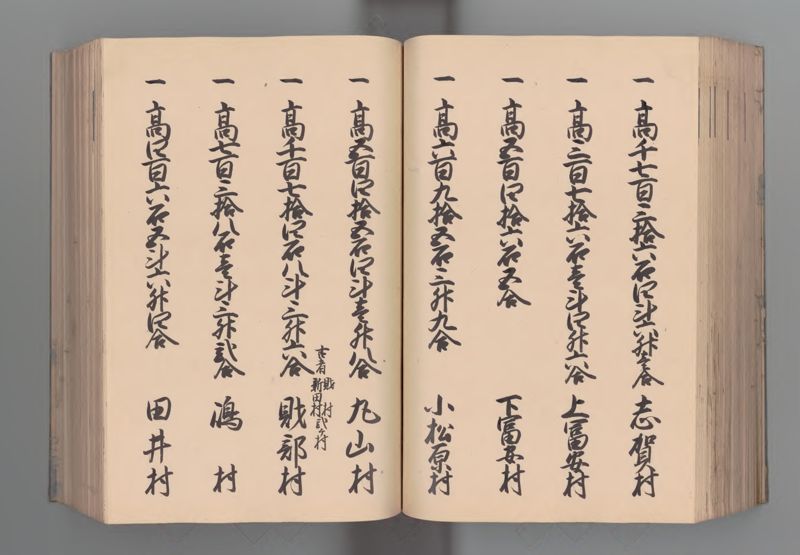 一 高千七百三拾六石四斗六升壱合 志賀村
一 高三百七拾六石壱斗四升六合 上富安村
一 高五百四拾六石五合 下富安村
一 高六百九拾五石三升九合 小松原村
一 高五百四拾五石四斗壱升八合 丸山村
一 高千百七拾四石八斗三升六合 財部村
古者 財村 新田村 弐ケ村
一 高七百三拾八石壱斗三升弐合 嶋村
一 高四百六石五斗六升四合 田井村